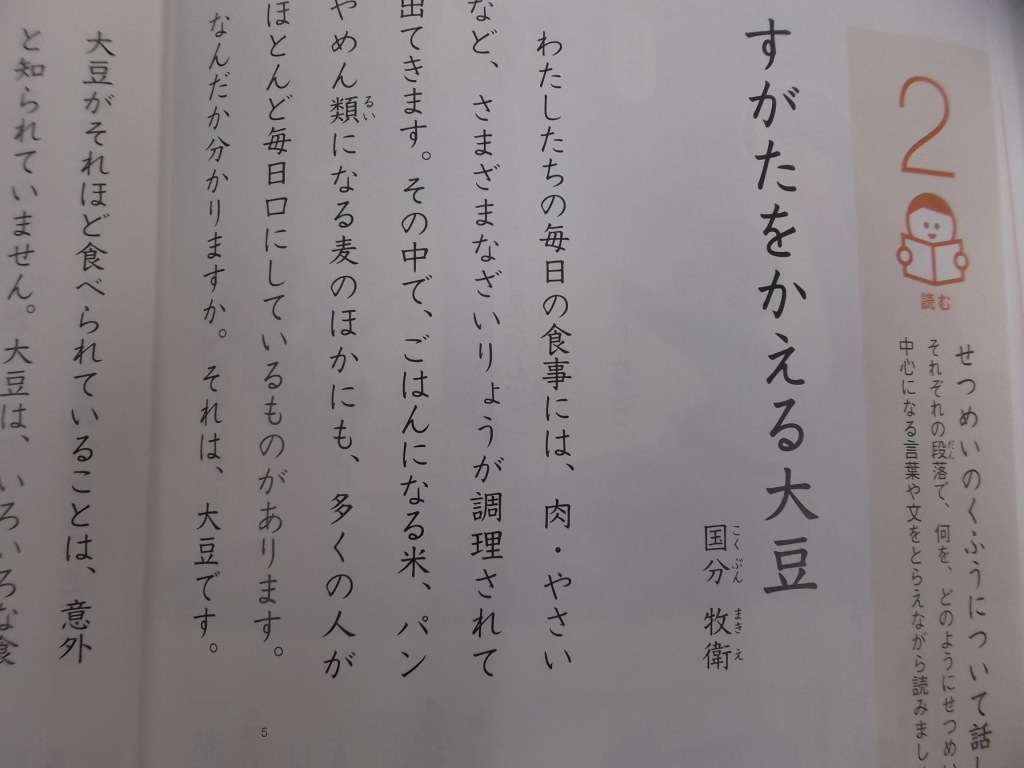 2
読む
せつめいのくふうについて話し
それぞれの段落で、何を、どのようにせつめい
中心になる言葉や文をとらえながら読みまし
すがたをかえる大豆
国分 牧衛
こくぶん まきえ
わたしたちの毎日の食事には、肉・やさい
など、さまざまなざいりょうが調理されて
出てきます。その中で、ごはんになる米、パン
やめん類になる麦のほかにも、多くの人が
るい
ほとんど毎日口にしているものがあります。
なんだか分かりますか。それは、大豆です。
5
大豆がそれほど食べられていることは、意外
と知られていません。大豆は、いろいろな食